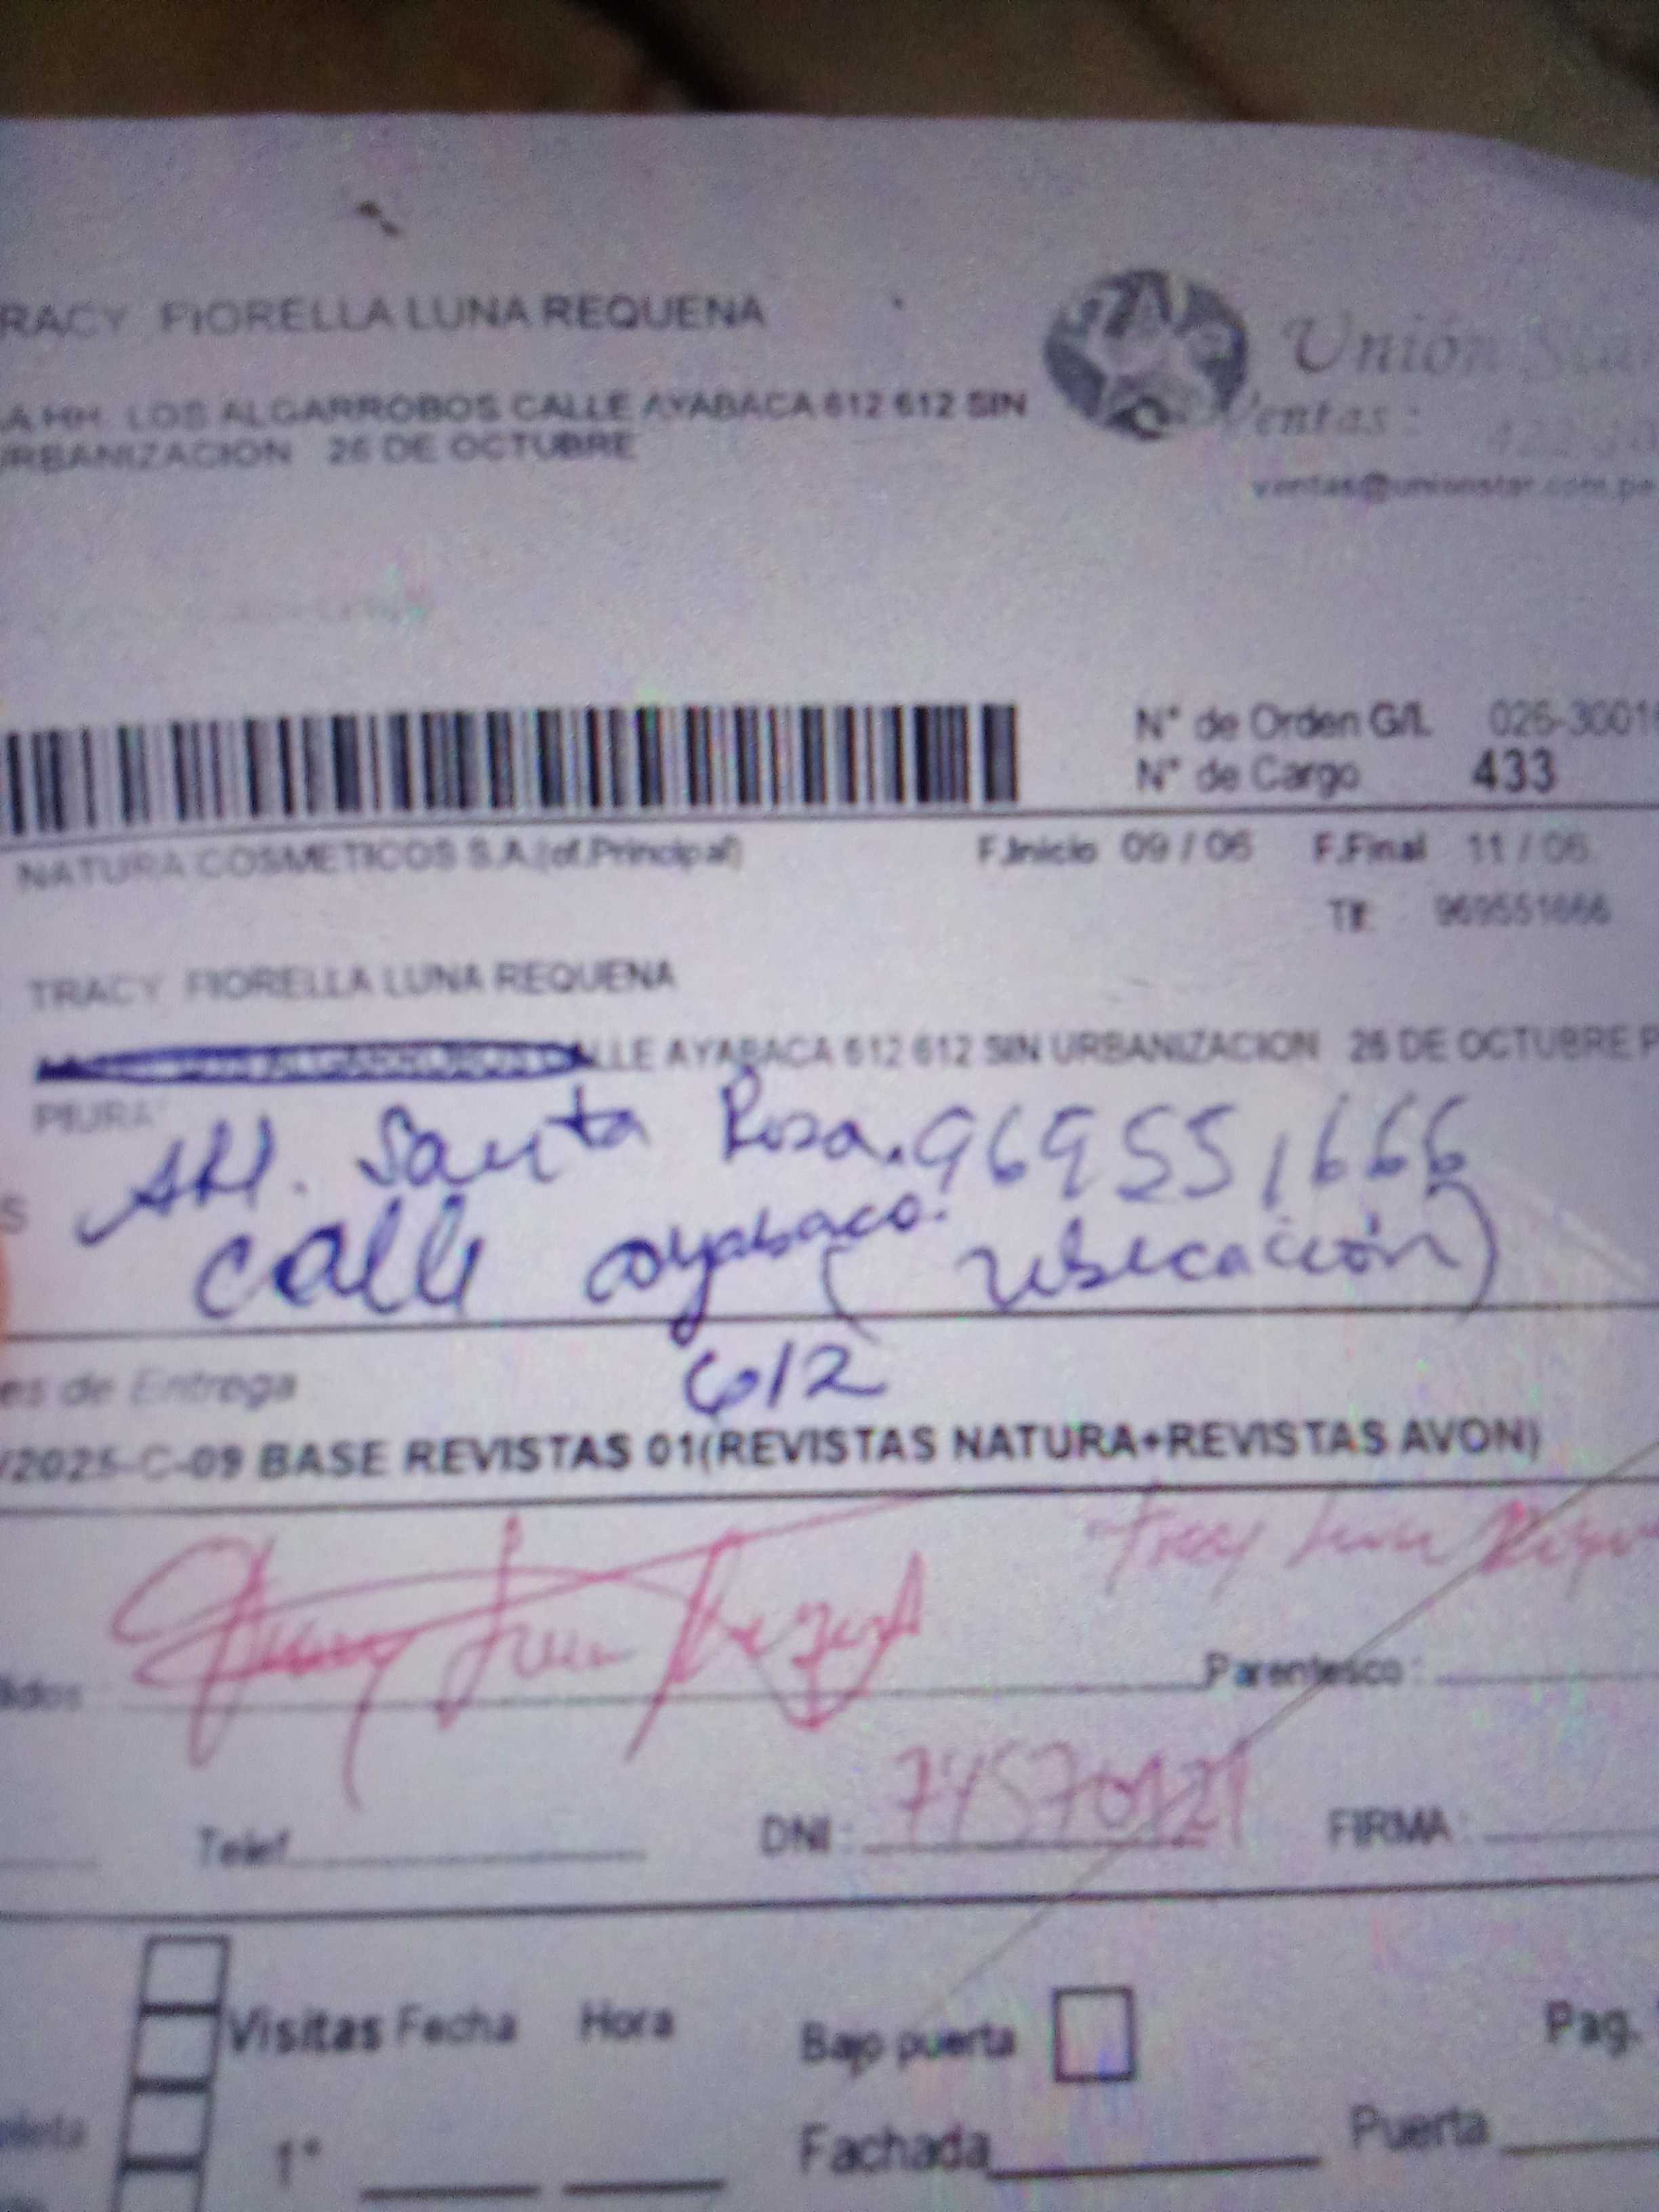 RACY FIORELLA LUNA REQUENA
A.HH. LOS ALGARROBOS CALLE AYABACA 612 612 SIN
URBANIZACION 26 DE OCTUBRE
Unión Star
Ventas :
ventas@unionstar.com.pe
N° de Orden G/L 026-3001
N° de Cargo 433
NATURA COSMETICOS S.A.(of.Principal) F.Inicio 09 / 06 F.Final 11 / 06
Tlf: 969551666
TRACY FIORELLA LUNA REQUENA
ALLE AYABACA 612 612 SIN URBANIZACION 26 DE OCTUBRE P
PIURA
AH. Santa Rosa. 969551666
S
calle ayabaca. ( ubicación)
612
es de Entrega
/2025-C-09 BASE REVISTAS 01(REVISTAS NATURA+REVISTAS AVON)
Tracy Luna
llidos Parentesco :
Telef. DNI : FIRMA :
Visitas Fecha Hora Bajo puerta Pag.
pleta
1° Fachada Puerta